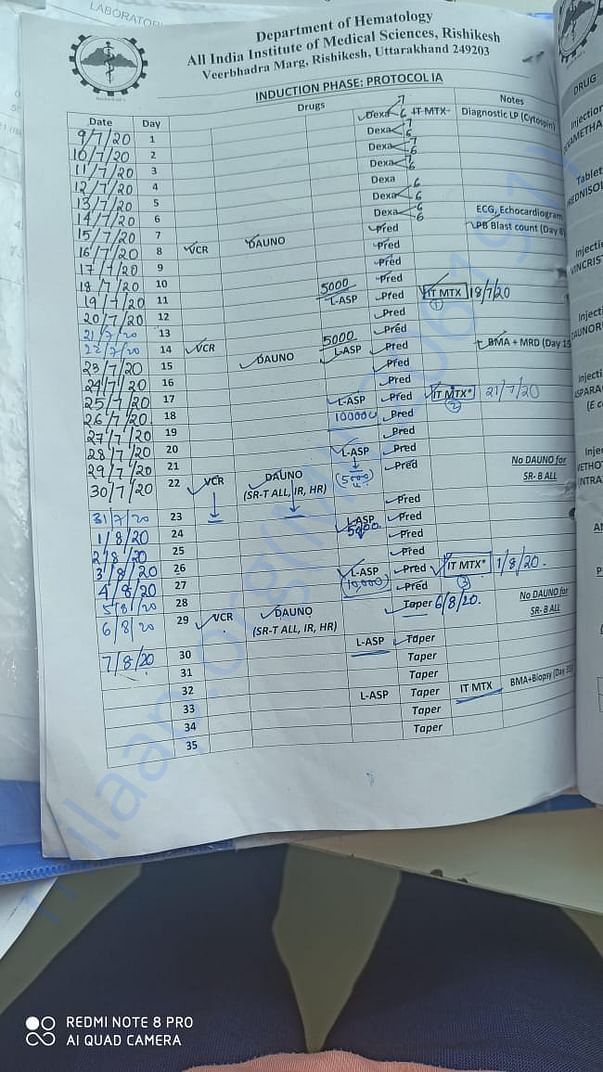 LABORATOR
Department of Hematology
All India Institute of Medical Sciences, Rishikesh
Veerbhadra Marg, Rishikesh, Uttarakhand 249203
INDUCTION PHASE: PROTOCOL IA
Drugs
Date Day Notes
9/7/20 1 Dexa 7 6 IT MTX Diagnostic LP (Cytospin)
10/7/20 2 Dexa 7 6
11/7/20 3 Dexa 7 6
12/7/20 4 Dexa 6
13/7/20 5 Dexa
14/7/20 6 Dexa 6 6
15/7/20 7 Dexa 6 6 ECG, Echocardiogram
16/7/20 8 VCR DAUNO Pred PB Blast count (Day 8
17/7/20 9 Pred
18/7/20 10 Pred
19/7/20 11 5000 L-ASP Pred IT MTX 18/7/20
1
20/7/20 12 Pred
21/7/20 13 Pred
22/7/20 14 VCR 5000 L-ASP Pred BMA + MRD (Day 15
23/7/20 15 DAUNO Pred
24/7/20 16 Pred
25/7/20 17 L-ASP Pred IT MTX* 21/7/20
2
26/7/20 18 10000 Pred
27/7/20 19 Pred
28/7/20 20 L-ASP Pred
29/7/20 21 Pred
30/7/20 22 VCR DAUNO (5000 No DAUNO for
(SR-T ALL, IR, HR) SR- B ALL
31/7/20 23 Pred
1/8/20 24 L-ASP Pred
5000
2/8/20 25 Pred
3/8/20 26 Pred
4/8/20 27 L-ASP Pred IT MTX* 1/8/20.
(10,000) 3
5/8/20 28 Pred
6/8/20 29 VCR DAUNO Taper 6/8/20. No DAUNO for
(SR-T ALL, IR, HR) SR- B ALL
7/8/20 30 L-ASP Taper
31 Taper
32 Taper
33 L-ASP Taper IT MTX BMA+Biopsy (Day 33
34 Taper
35 Taper
DRUG
Injection
Tablet
Injecti
VINCRIST
Injecti
Injecti
(E c
Injec
INTRA
milaap.org
REDMI NOTE 8 PRO
AI QUAD CAMERA